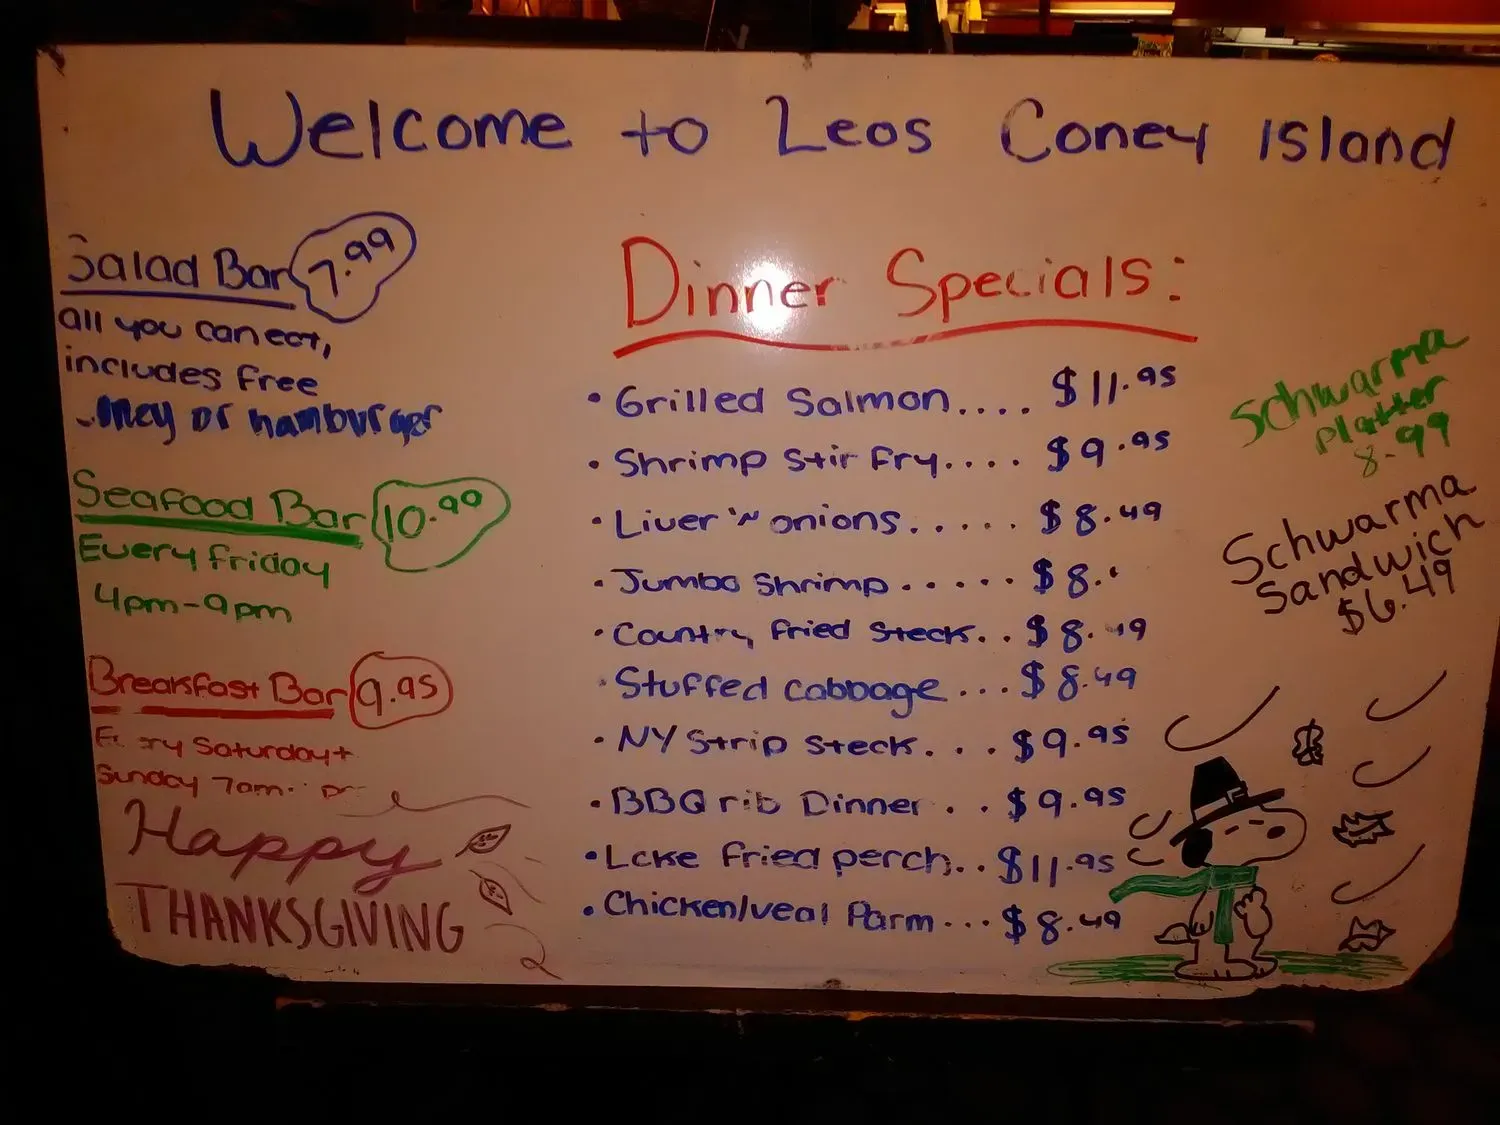 Welcome to Leos Coney Island
Salad Bar 7.99
all you can eat,
includes free
or hamburger
Seafood Bar 10.99
Every Friday
4pm-9pm
Breakfast Bar 9.95
Saturday +
Sunday 7am
Happy
THANKSGIVING
Dinner Specials:
• Grilled Salmon.... $11.95
• Shrimp Stir Fry.... $9.95
• Liver 'N onions..... $8.49
• Jumbo Shrimp..... $8.
• Country Fried Steak.. $8.49
• Stuffed cabbage... $8.49
• NY Strip Steak... $9.95
• BBQ rib Dinner.. $9.95
• Lake Fried perch.. $11.95
• Chicken/veal Parm... $8.49
Schwarma
platter
8.99
Schwarma
Sandwich
$6.49